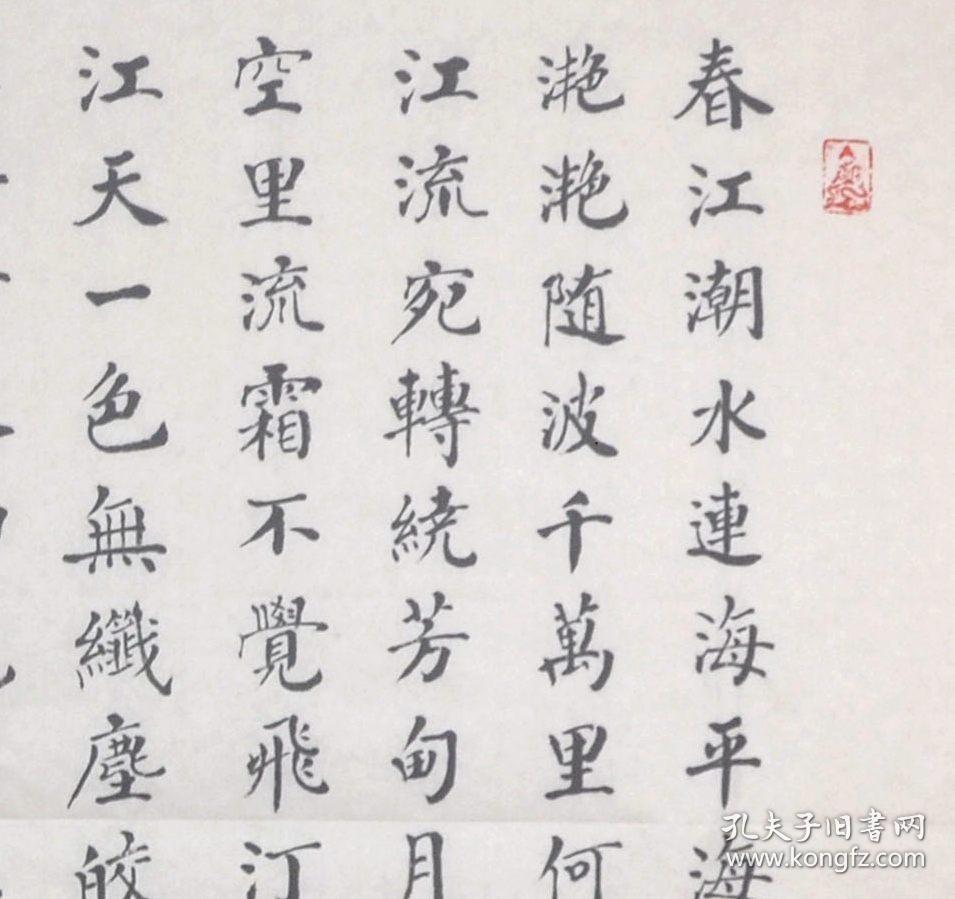 春江潮水連海平海
滟滟随波千萬里何
江流宛轉繞芳甸月
空里流霜不覺飛汀
江天一色無纖塵皎
孔夫子旧書网
www.kongfz.com